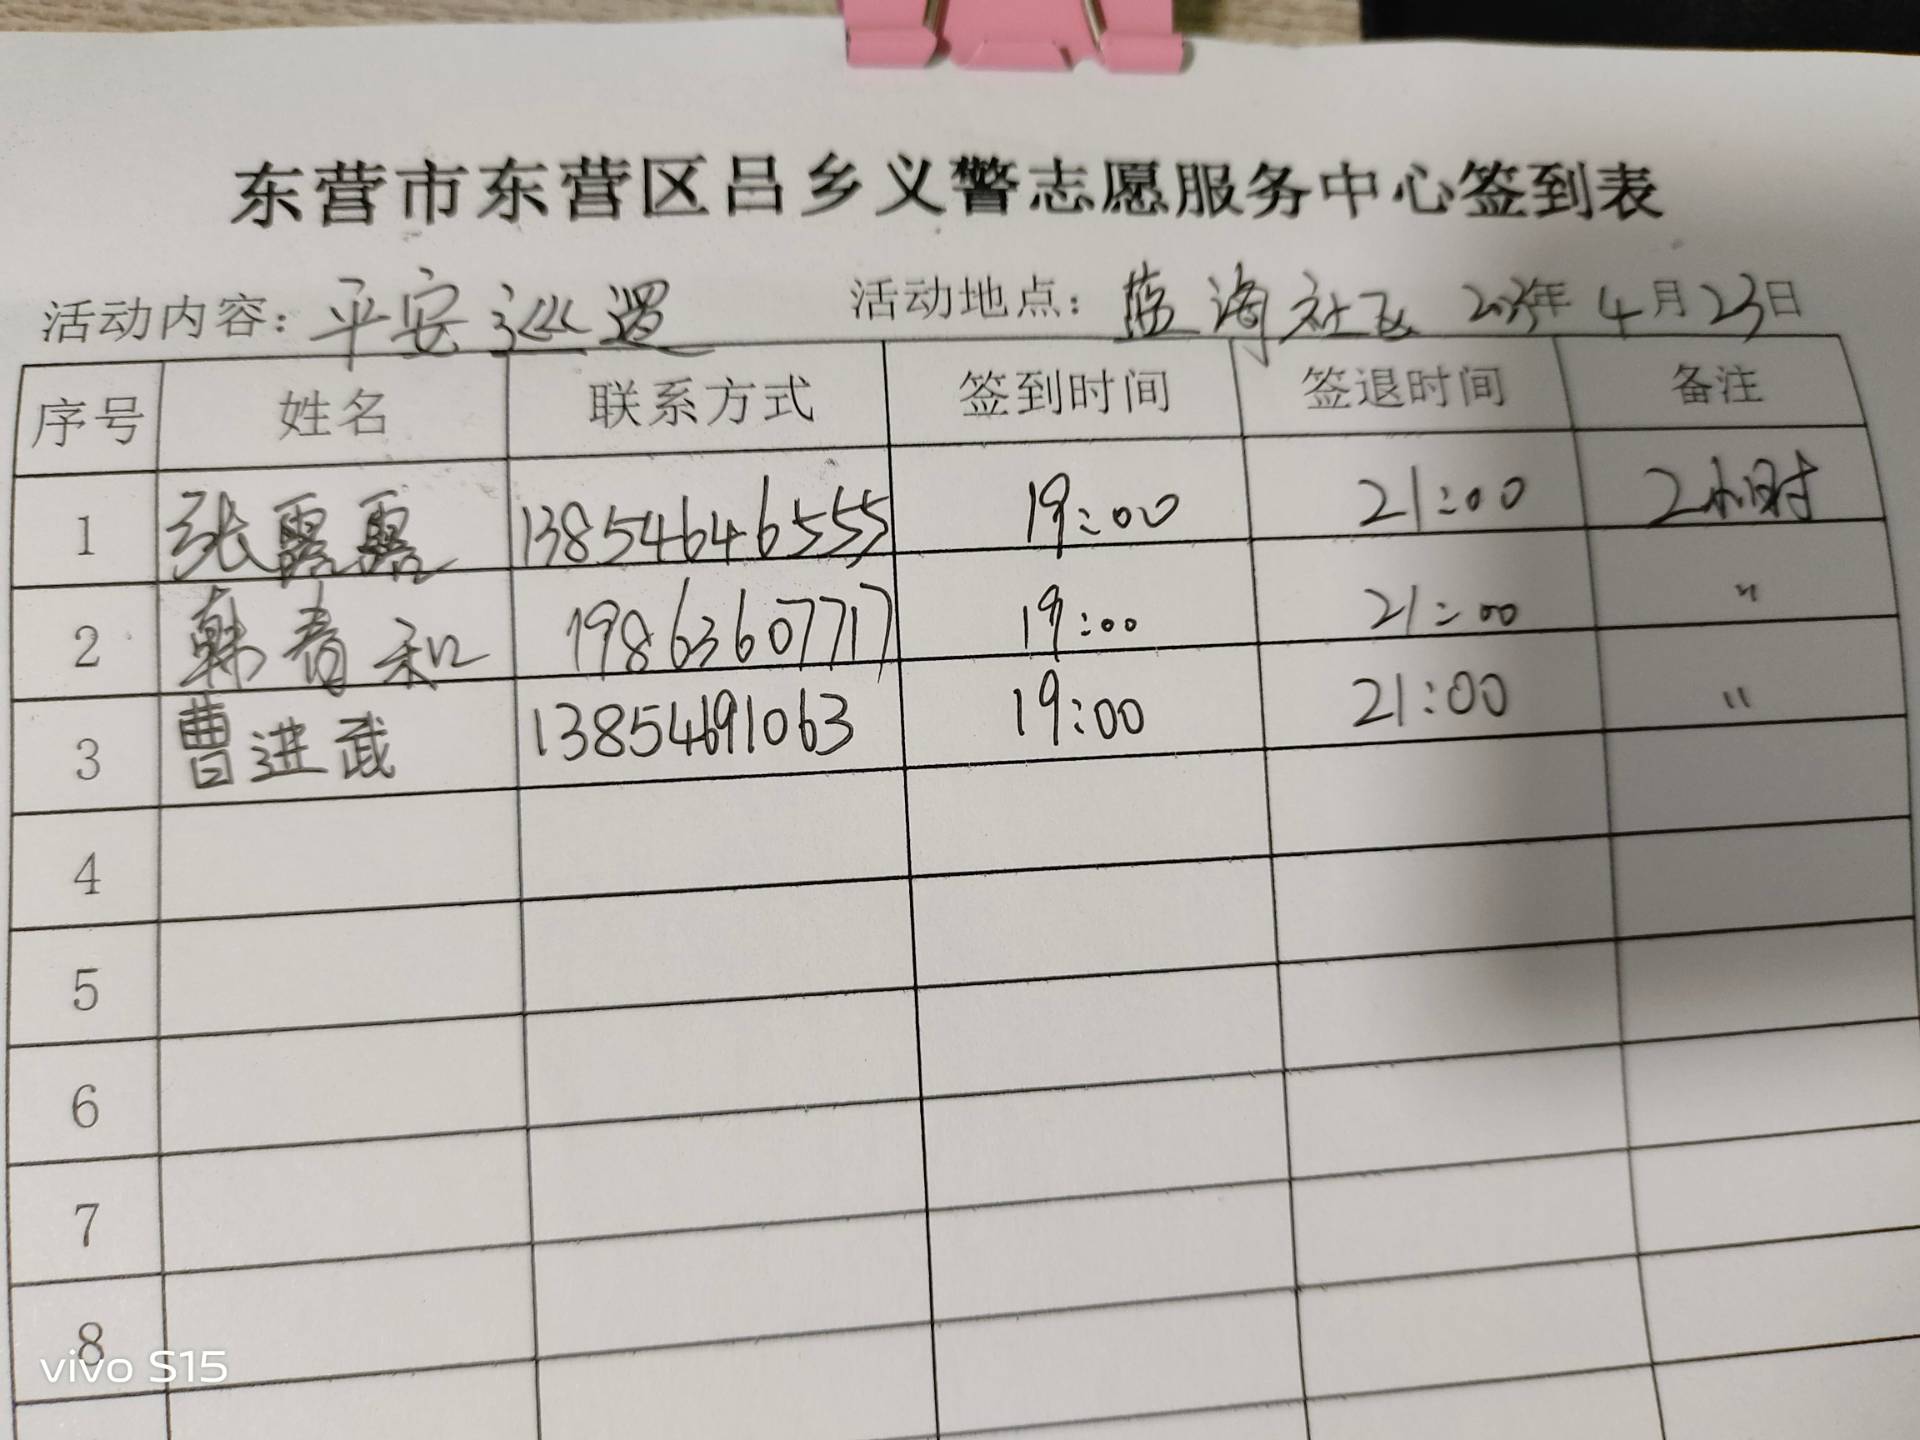 东营市东营区吕乡义警志愿服务中心签到表
活动内容：平安巡逻 活动地点：蓝海社区 2023年 4月23日
序号 姓名 联系方式 签到时间 签退时间 备注
1 张露露 13854646555 19:00 21:00 2小时
2 韩春和 19863607717 19:00 21:00 〃
3 曹进武 13854691063 19:00 21:00 〃
4
5
6
7
8
vivo S15